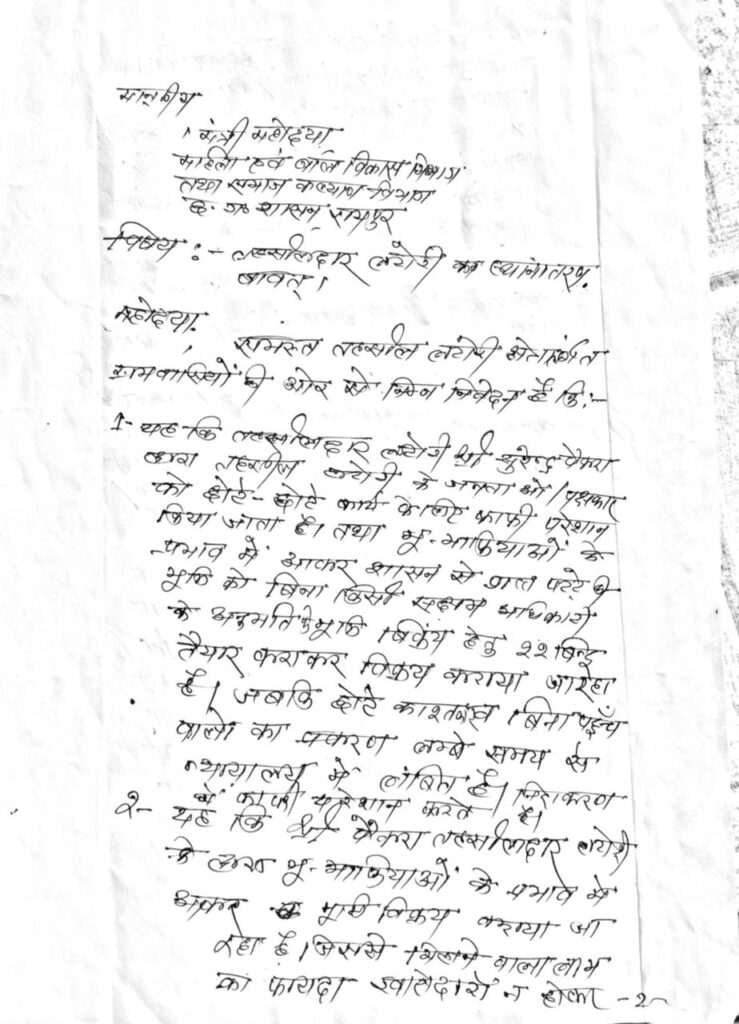 माननीय
मंत्री महोदया,
महिला एवं बाल विकास विभाग
तथा समाज कल्याण विभाग
छ. ग. शासन, रायपुर
विषय :- तहसीलदार लटोरी का स्थानांतरण
बावत्।
महोदया,
समस्त तहसील लटोरी क्षेत्रान्तर्गत
ग्रामवासियों की ओर से निम्न निवेदन है कि:-
1- यह कि तहसीलदार लटोरी श्री सुरेन्द्र पैकरा
द्वारा तहसील लटोरी के जनता ओं / पक्षकार
को छोटे-छोटे कार्य के लिए काफी परेशान
किया जाता है। तथा भू-माफियाओं के
प्रभाव में आकर शासन से प्राप्त पट्टे की
भूमि को बिना किसी सक्षम अधिकारी
के अनुमति के भूमि बिक्रय हेतु 22 बिन्दु
तैयार कराकर विक्रय कराया जा रहा
है। जबकि छोटे काश्तकार बिना पहुँच
वालो का प्रकरण लम्बे समय से
न्यायालय में लंबित है। निराकरण
में काफी परेशान करते है।
2- यह कि श्री पैकरा तहसीलदार लटोरी
के द्वारा भू-माफियाओं के प्रभाव में
आकर भूमि विक्रय कराया जा
रहा है। जिससे मिलने वाला लाभ
का फायदा खातेदारों न होकर -2-